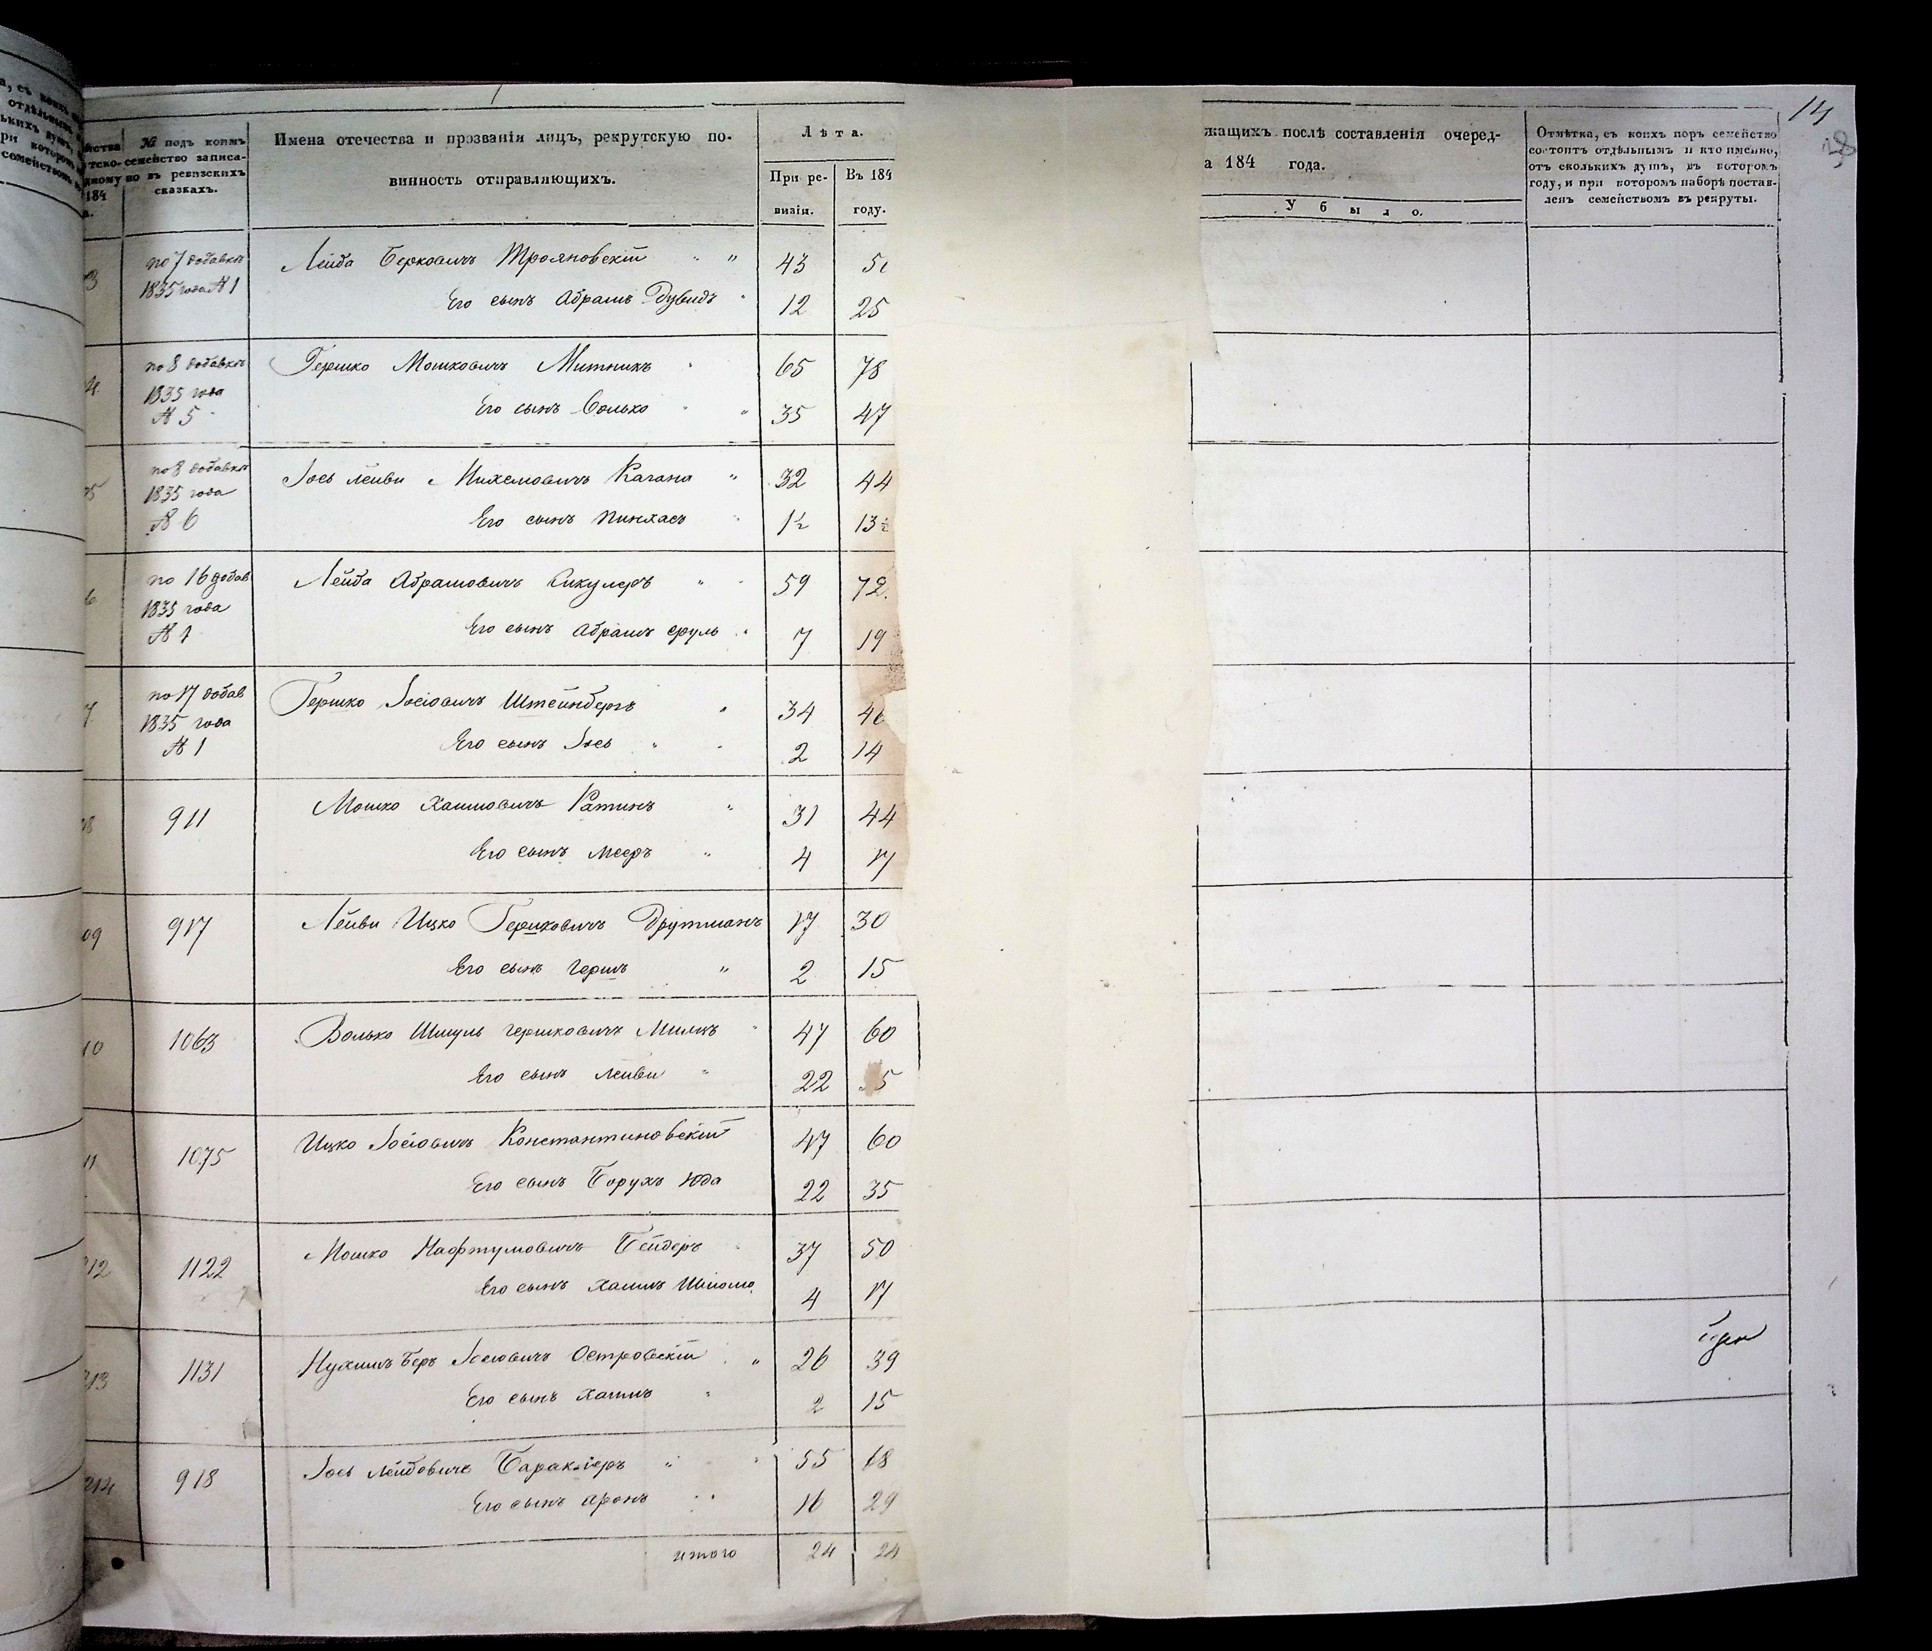 14
№ подъ коимъ семейство записано въ ревизскихъ сказкахъ.
Имена отечества и прозванія лицъ, рекрутскую повинность отправляющихъ.
Лѣта.
При ревизіи.
Въ 184 году.
жащихъ послѣ составленія очеред-
а 184 года.
Убыло.
Отмѣтка, съ коихъ поръ семейство
состоитъ отдѣльнымъ и кто именно,
отъ сколькихъ душъ, въ которомъ
году, и при которомъ наборѣ постав-
ленъ семействомъ въ рекруты.
3 по 7 добавкѣ 1835 года № 1 Лейба Берковичъ Трояновскій " " 43
Его сынъ Абрамъ Дувидъ " 12 25
4 по 8 добавкѣ 1835 года № 5 Гершко Мошковичъ Митникъ " 65 78
Его сынъ Волько " " 35 47
5 по 8 добавкѣ 1835 года № 6 Іось Лейви Нихемовичъ Кагана " 32 44
Его сынъ Пинхасъ " 1½ 13½
6 по 16 добав 1835 года № 1 Лейба Абрамовичъ Сикулеръ " " 59 72
Его сынъ Абрамъ Сруль " 7 19
7 по 17 добав 1835 года № 1 Гершко Іосіовичъ Штейнбергъ " 34 46
Его сынъ Іось " " 2 14
08 911 Мошко Хаимовичъ Ратинъ " 31 44
Его сынъ Мееръ " 4 17
09 917 Лейви Ицко Гершковичъ Друтманъ 17 30
Его сынъ Гершъ " 2 15
10 1063 Волько Шмуль Гершковичъ Милнъ " 47 60
Его сынъ Лейви " 22 5
11 1075 Ицко Іосіовичъ Константиновскій 47 60
Его сынъ Борухъ Юда 22 35
212 1122 Мошко Нафтуловичъ Бейдеръ " 37 50
Его сынъ Хаимъ Шліома 4 17
213 1131 Нухимъ Беръ Іосіовичъ Островскій " 26 39
Его сынъ Хаимъ " 2 15
214 918 Іось Лейбовичъ Баракліеръ " " 55 68
Его сынъ Аронъ " " 16 29
итого 24 24